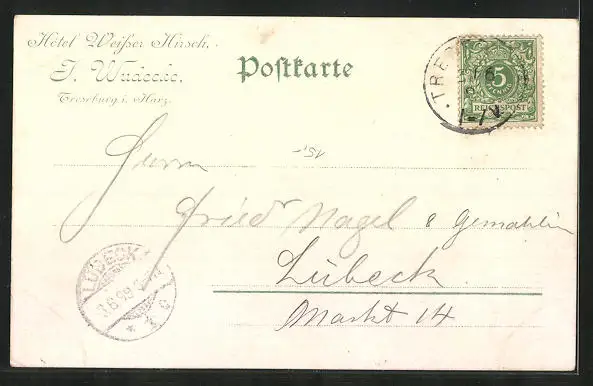 Hôtel Weißer Hirsch.
J. Wudecke.
Treseburg i. Harz.
Postkarte
TRE
5
PFENNIG
REICHSPOST
15,-
Herrn
Fried. Nagel & Gemahlin
Lübeck
Markt 14
LÜBECK
1.6.99
* 3